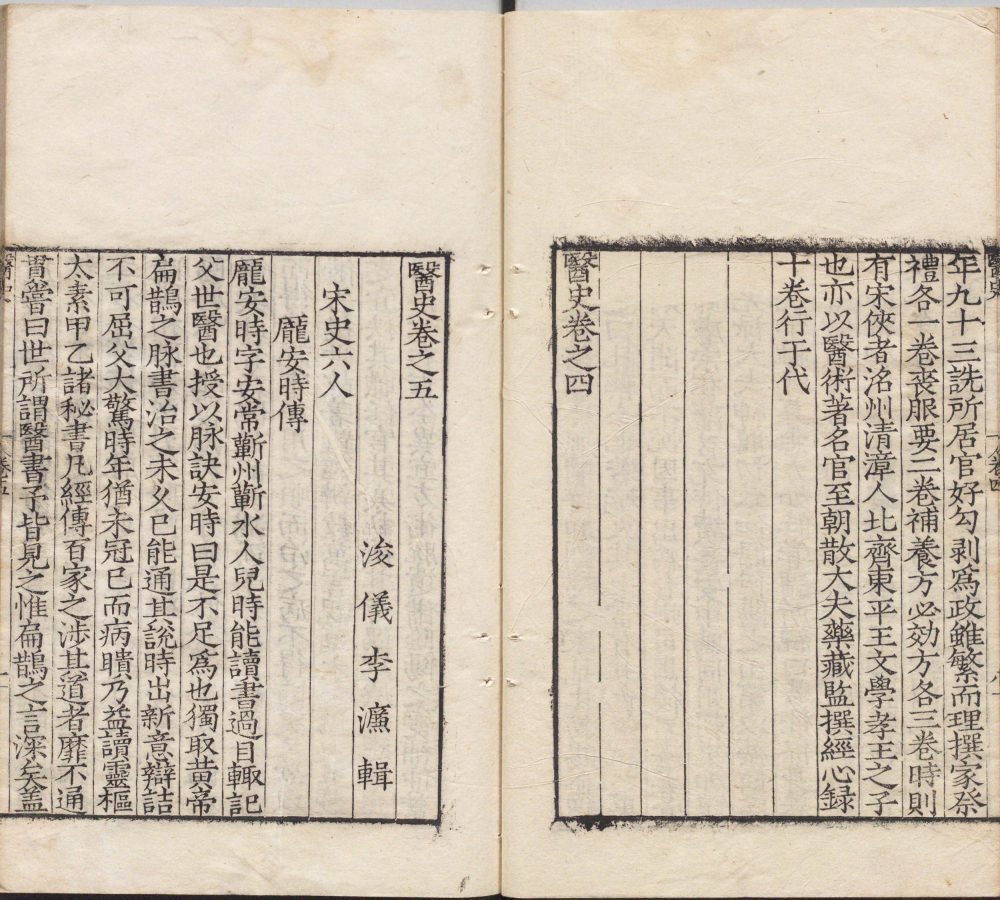 年九十三詵所居官好勾剥爲政雖繁而理撰家祭
禮各一卷喪服要二卷補養方必効方各三卷時則
有宋俠者洺州清漳人北齊東平王文學孝王之子
也亦以醫術著名官至朝散大夫藥藏監撰經心録
十卷行于代
醫史卷之四
醫史卷之五
浚儀李濂輯
宋史六人
龐安時傳
龐安時字安常蘄州蘄水人兒時能讀書過目輙記
父世醫也授以脉訣安時曰是不足爲也獨取黄帝
扁鵲之脉書治之未乆已能通其說時出新意辯詰
不可屈父大驚時年猶未冠已而病聵乃益讀靈樞
太素甲乙諸秘書凡經傳百家之涉其道者靡不通
貫嘗曰世所謂醫書予皆見之惟扁鵲之言深矣盖